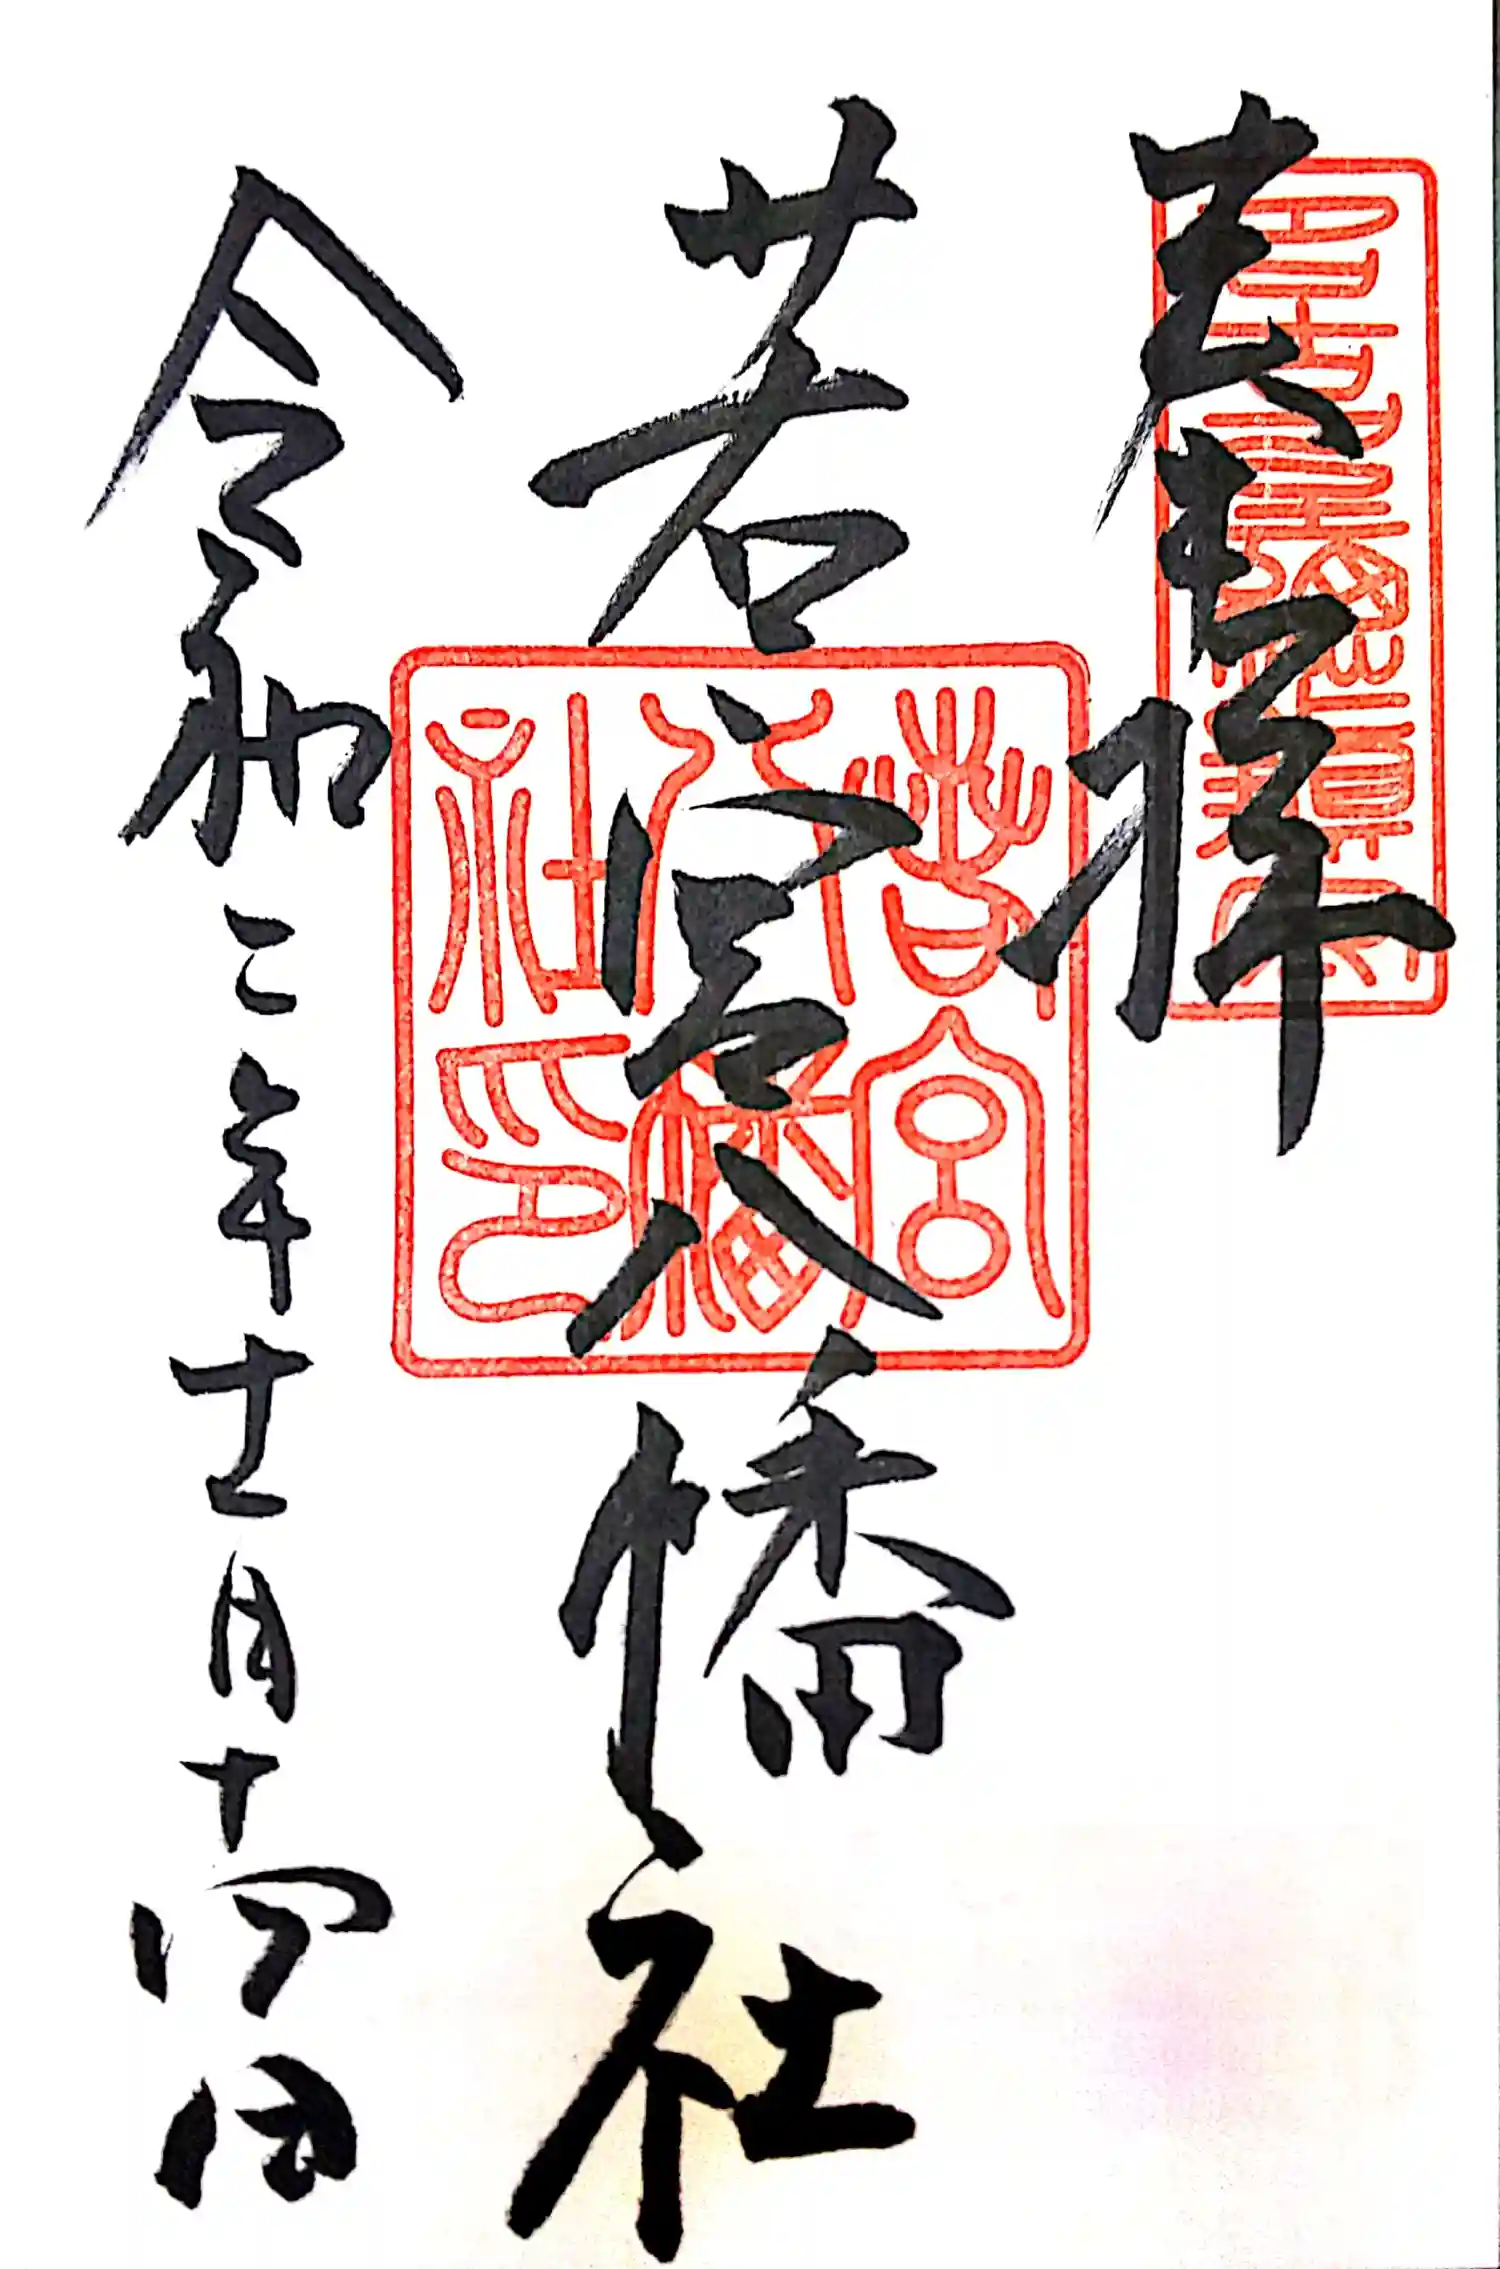 奉拝
若宮八幡社
令和二年十一月十四日
若宮八幡社印